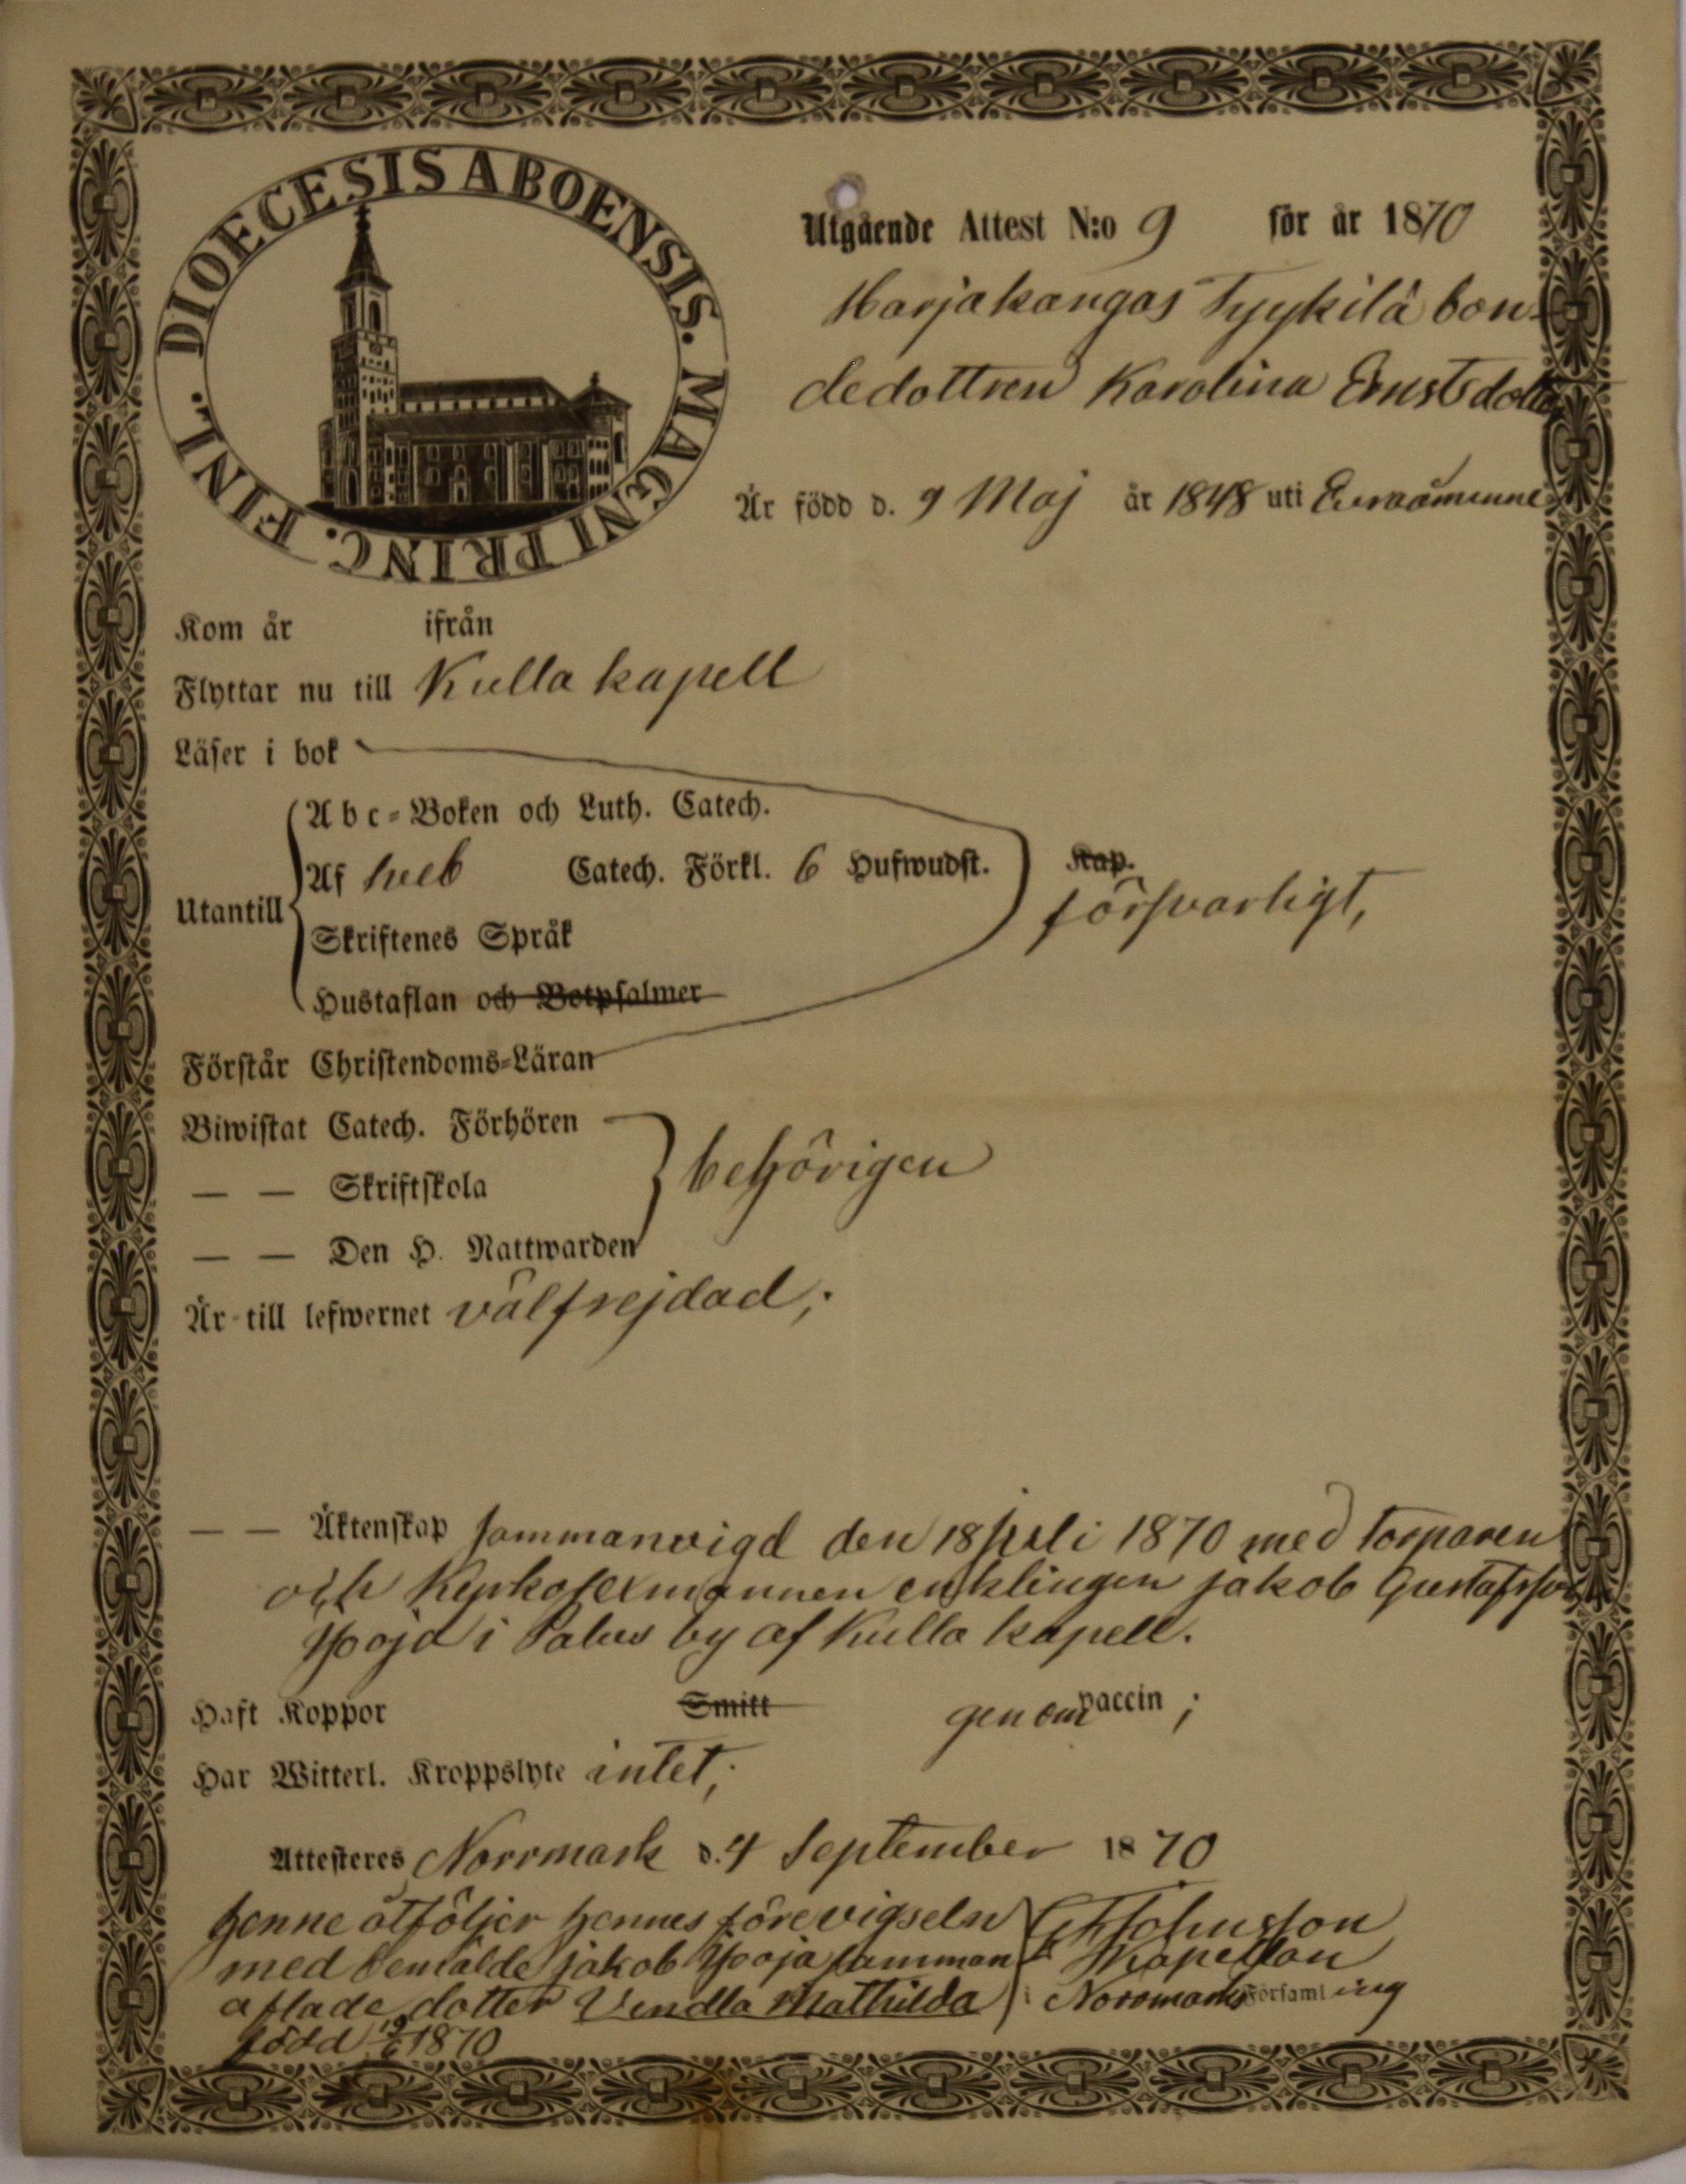 DIOECESIS ABOENSIS. MAGNI PRINC. FINL.
Utgående Attest N:o 9 för år 1870
Harjakangas Tyykilä bon-
dedottren Karolina Ernstsdotter
Är född d. 9 Maj år 1848 uti Euraåminne
Kom år ifrån
Flyttar nu till Kulla kapell
Läser i bok
Abc-Boken och Luth. Catech.
Utantill Af Sveb Catech. Förkl. 6 Hufwudst. Kap.
försvarligt,
Skriftenes Språk
Hustaflan och Botpsalmer
Förstår Christendoms-Läran
Biwistat Catech. Förhören
— — Skriftskola behörigen
— — Den H. Nattwarden
Är till lefwernet välfrejdad;
— — Äktenskap sammanvigd den 18 Juli 1870 med torparen
och enklingen Jakob Gustafsson
i Palus by af Kulla kapell.
Haft Koppor Smitt genom vaccin;
Har Witterl. Kroppslyte intet;
Attesteres Norrmark d. 4 September 1870
henne åtföljer hennes före vigseln
med bemälde Jakob samman
aflade dotter Vendla Mathilda
född 19/6 1870
Kapellan
i Norrmarks Församling